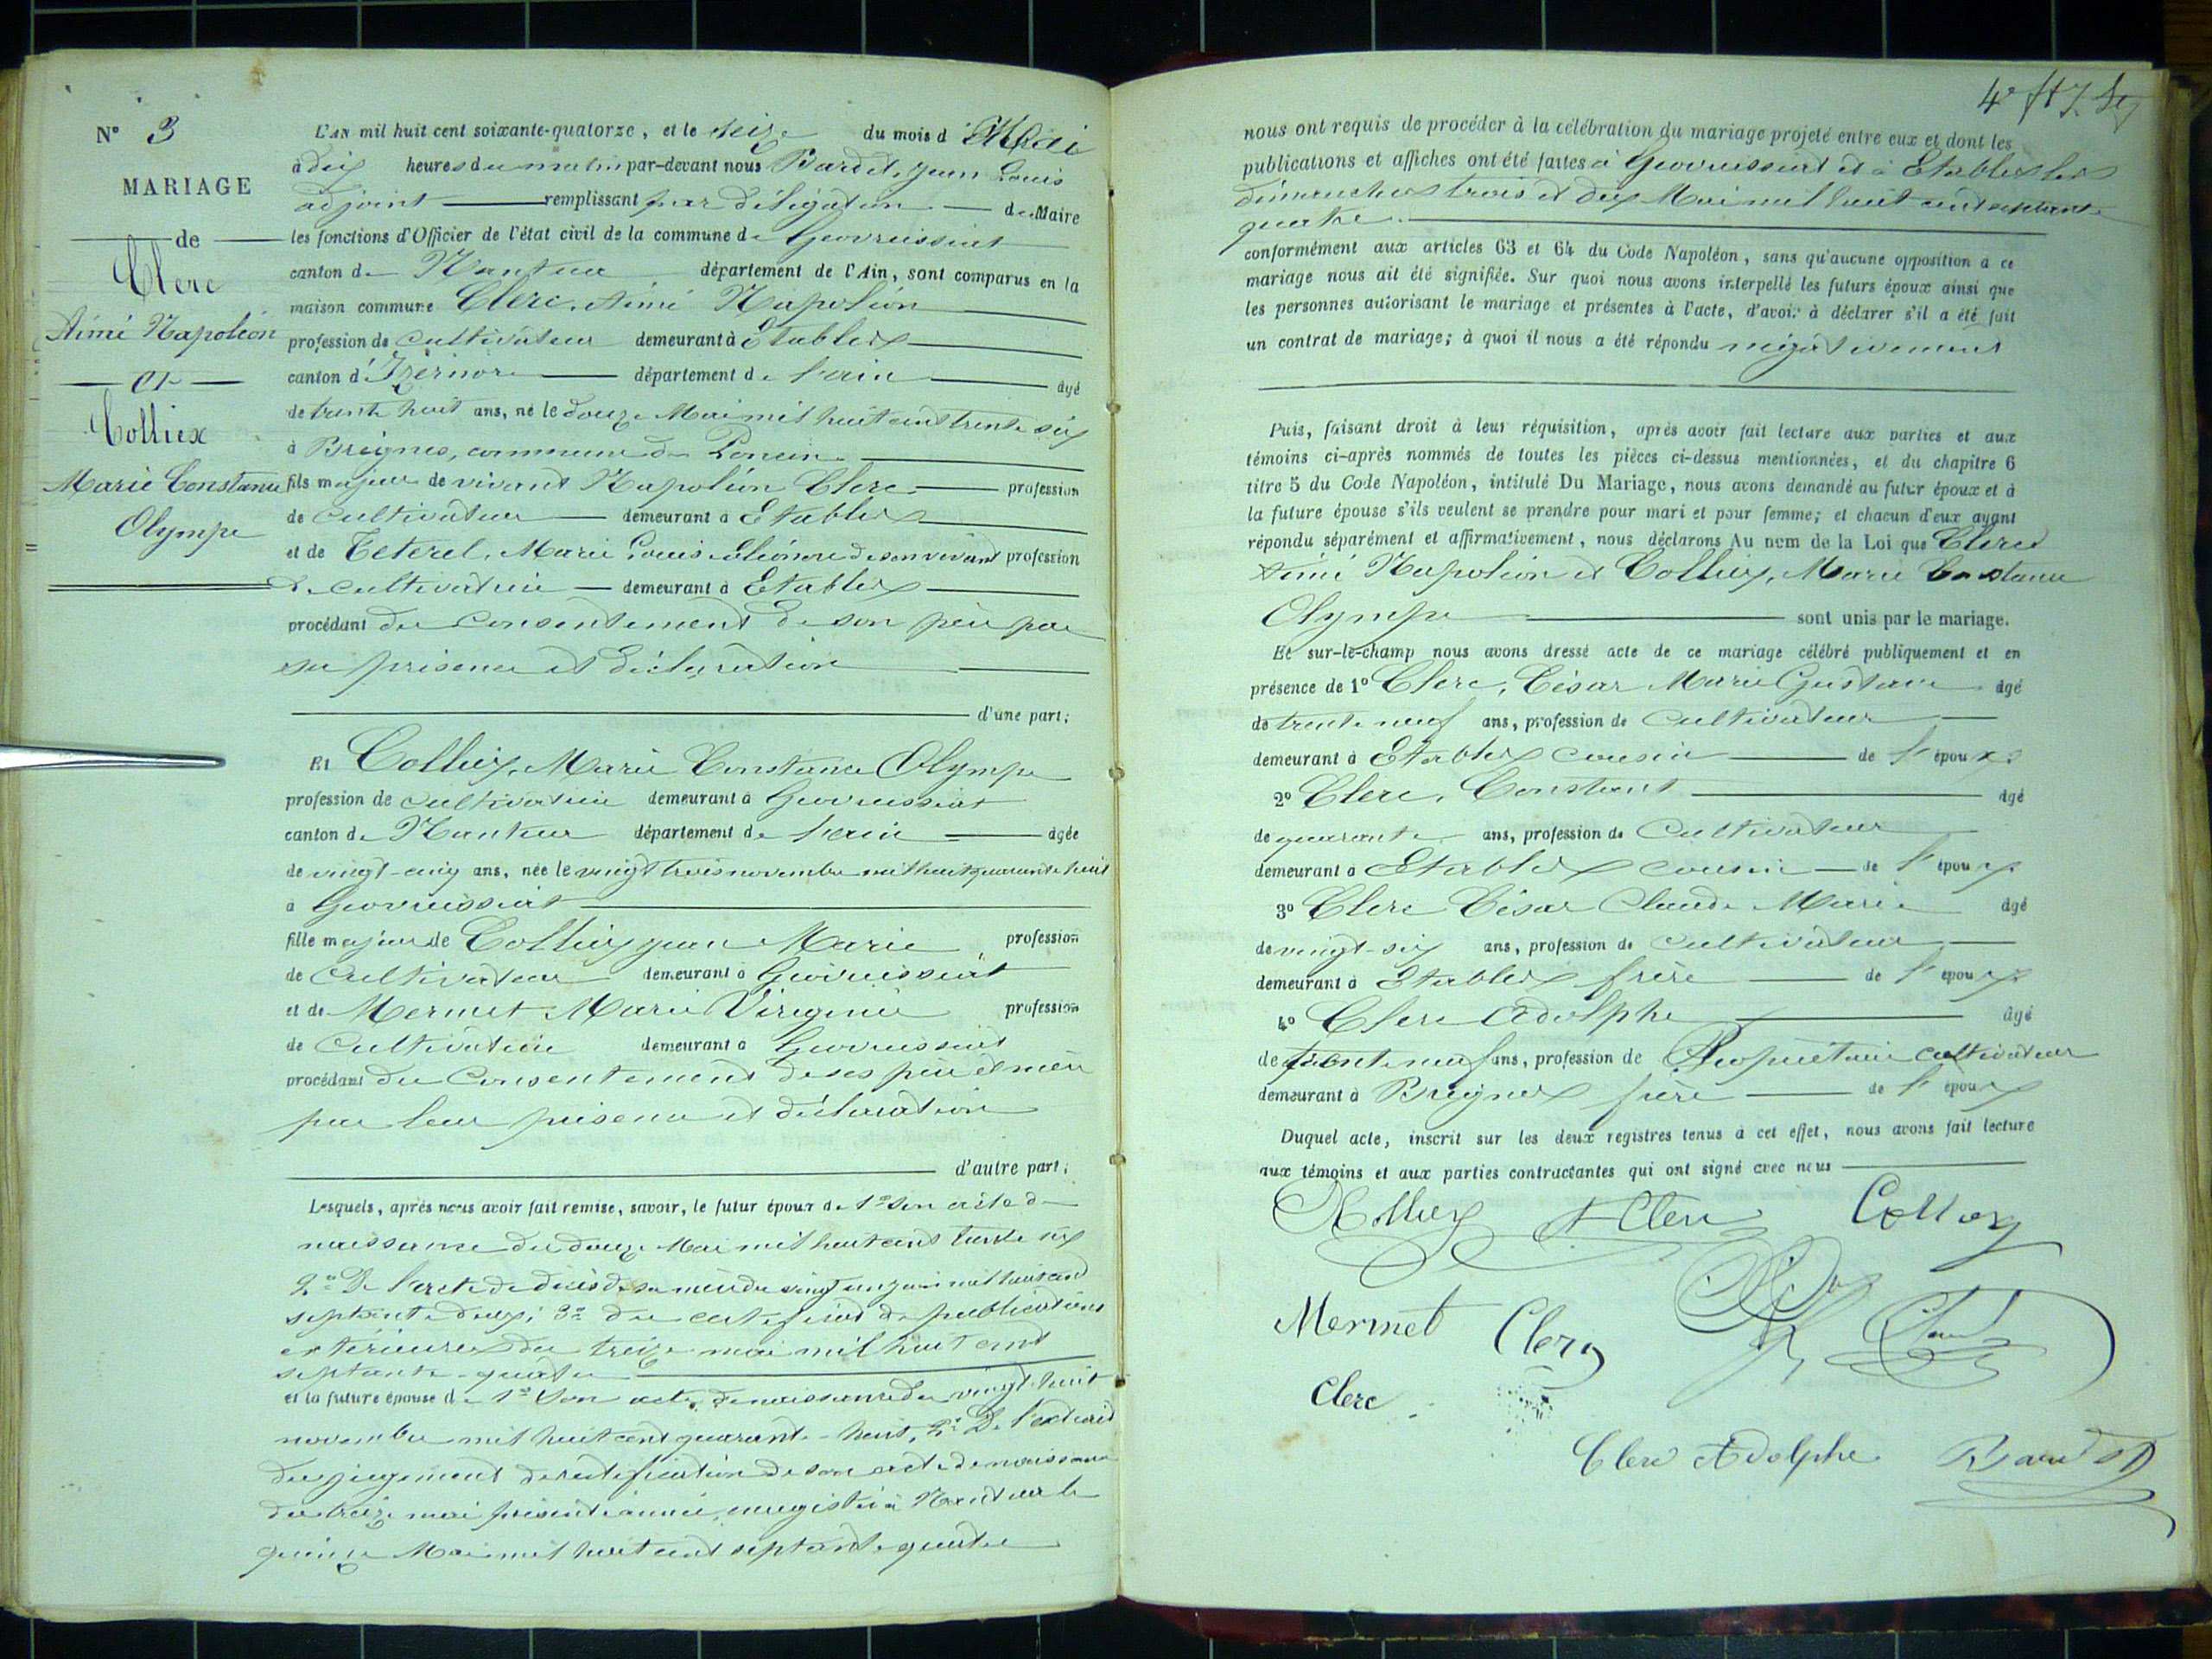 N° 3
MARIAGE
de
Clerc
Aimé Napoléon
et
Colliex
Marie Constance
Olympe
L'AN mil huit cent soixante-quatorze, et le seize du mois de Mai
à dix heures du matin par-devant nous Bardet, jean Louis
adjoint remplissant par délégation du Maire
les fonctions d'Officier de l'état civil de la commune de Géovreissiat
canton de Nantua département de l'Ain, sont comparus en la
maison commune Clerc, Aimé Napoléon
profession de Cultivateur demeurant à Etables
canton d'Izernore département de l'ain âgé
de trente huit ans, né le douze Mai mil huit cent trente six
à Breignes, commune de Poncin
fils majeur de vivant Napoléon Clerc profession
de Cultivateur demeurant à Etables
et de Teterel, Marie Louise Eléonore de son vivant profession
de cultivatrice demeurant à Etables
procédant du Consentement de son père par
sa présence et déclaration
d'une part;
Et Colliex, Marie Constance Olympe
profession de cultivatrice demeurant à Géovreissiat
canton de Nantua département de l'ain âgée
de vingt-cinq ans, née le vingt trois novembre mil huit quarante huit
à Géovreissiat
fille majeure de Colliex jean Marie profession
de Cultivateur demeurant à Géovreissiat
et de Mermet Marie Virginie profession
de Cultivatrice demeurant à Géovreissiat
procédant du Consentement de ses père et mère
par leur présence et déclaration
d'autre part;
Lesquels, après nous avoir fait remise, savoir, le futur époux de 1° Son acte de
naissance du douze Mai mil huit cent trente six
2° De l'acte de décès de sa mère du vingt un juin mil huit cent
septante deux; 3° du certificat de publications
extérieures du treize mai mil huit cent
septante-quatre
et la future épouse de 1° Son acte de naissance du vingt-huit
novembre mil huit cent quarante-huit, 2° De l'extrait
du jugement de rectification de son acte de naissance
du treize mai présente année, enregistré à Nantua le
quinze Mai mil huit cent septante quatre
nous ont requis de procéder à la célébration du mariage projeté entre eux et dont les
publications et affiches ont été faites à Géovreissiat et à Etables les
dimanches trois et dix Mai mil huit cent septante
quatre
conformément aux articles 63 et 64 du Code Napoléon, sans qu'aucune opposition à ce
mariage nous ait été signifiée. Sur quoi nous avons interpellé les futurs époux ainsi que
les personnes autorisant le mariage et présentes à l'acte, d'avoir à déclarer s'il a été fait
un contrat de mariage; à quoi il nous a été répondu négativement
Puis, faisant droit à leur réquisition, après avoir fait lecture aux parties et aux
témoins ci-après nommés de toutes les pièces ci-dessus mentionnées, et du chapitre 6
titre 5 du Code Napoléon, intitulé Du Mariage, nous avons demandé au futur époux et à
la future épouse s'ils veulent se prendre pour mari et pour femme; et chacun d'eux ayant
répondu séparément et affirmativement, nous déclarons Au nom de la Loi que Clerc
Aimé Napoléon et Colliex, Marie Constance
Olympe sont unis par le mariage.
Et sur-le-champ nous avons dressé acte de ce mariage célébré publiquement et en
présence de 1° Clerc, César Marie Gustave âgé
de trente neuf ans, profession de Cultivateur
demeurant à Etables cousin de l'époux
2° Clerc, Constant âgé
de quarante ans, profession de Cultivateur
demeurant à Etables cousin de l'époux
3° Clerc César Claude Marie âgé
de vingt-six ans, profession de Cultivateur
demeurant à Etables frère de l'époux
4° Clerc Adolphe âgé
de trente neuf ans, profession de Propriétaire cultivateur
demeurant à Breignes frère de l'époux
Duquel acte, inscrit sur les deux registres tenus à cet effet, nous avons fait lecture
aux témoins et aux parties contractantes qui ont signé avec nous
Colliex A Clerc Colliex
Mermet Clerc
Clerc
Clerc Adolphe Bardet